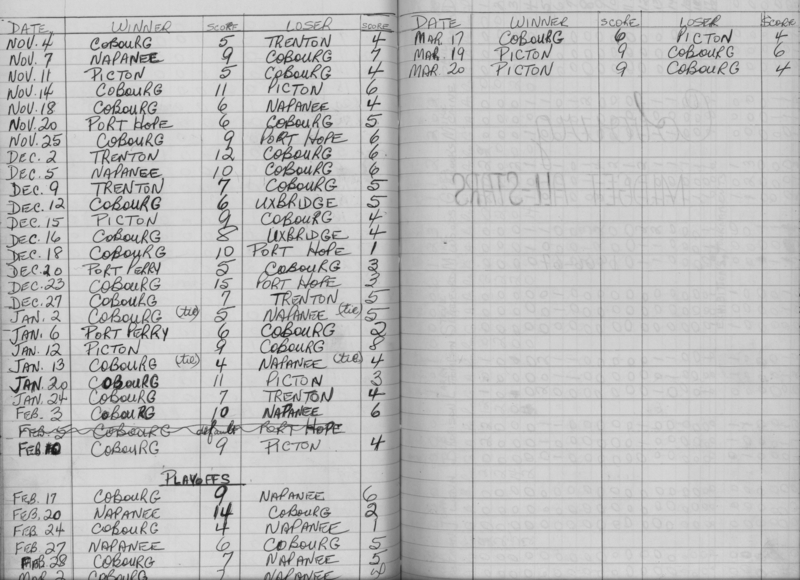 DATE WINNER SCORE LOSER SCORE
NOV. 4 COBOURG 5 TRENTON 4
NOV. 7 NAPANEE 9 COBOURG 7
NOV. 11 PICTON 5 COBOURG 4
NOV. 14 COBOURG 11 PICTON 6
NOV. 18 COBOURG 6 NAPANEE 4
NOV. 20 PORT HOPE 6 COBOURG 5
NOV. 25 COBOURG 9 PORT HOPE 6
DEC. 2 TRENTON 12 COBOURG 6
DEC. 5 NAPANEE 10 COBOURG 6
DEC. 9 TRENTON 7 COBOURG 5
DEC. 12 COBOURG 6 UXBRIDGE 5
DEC. 15 PICTON 9 COBOURG 4
DEC. 16 COBOURG 8 UXBRIDGE 4
DEC. 18 COBOURG 10 PORT HOPE 1
DEC. 20 PORT PERRY 5 COBOURG 3
DEC. 23 COBOURG 15 PORT HOPE 3
DEC. 27 COBOURG 7 TRENTON 5
JAN. 2 COBOURG (tie) 5 NAPANEE (tie) 5
JAN. 6 PORT PERRY 6 COBOURG 2
JAN. 12 PICTON 9 COBOURG 8
JAN. 13 COBOURG (tie) 4 NAPANEE (tie) 4
JAN. 20 COBOURG 11 PICTON 3
JAN. 24 COBOURG 7 TRENTON 4
FEB. 3 COBOURG 10 NAPANEE 6
FEB. 5 COBOURG default PORT HOPE
FEB 10 COBOURG 9 PICTON 4
PLAYOFFS
FEB. 17 COBOURG 9 NAPANEE 6
FEB. 20 NAPANEE 14 COBOURG 2
FEB. 24 COBOURG 4 NAPANEE 1
FEB. 27 NAPANEE 6 COBOURG 5
FEB. 28 COBOURG 7 NAPANEE 5
MAR. 2 COBOURG 7 NAPANEE
DATE WINNER SCORE LOSER SCORE
MAR. 17 COBOURG 6 PICTON 4
MAR. 19 PICTON 9 COBOURG 6
MAR. 20 PICTON 9 COBOURG 4
ALL-STARS